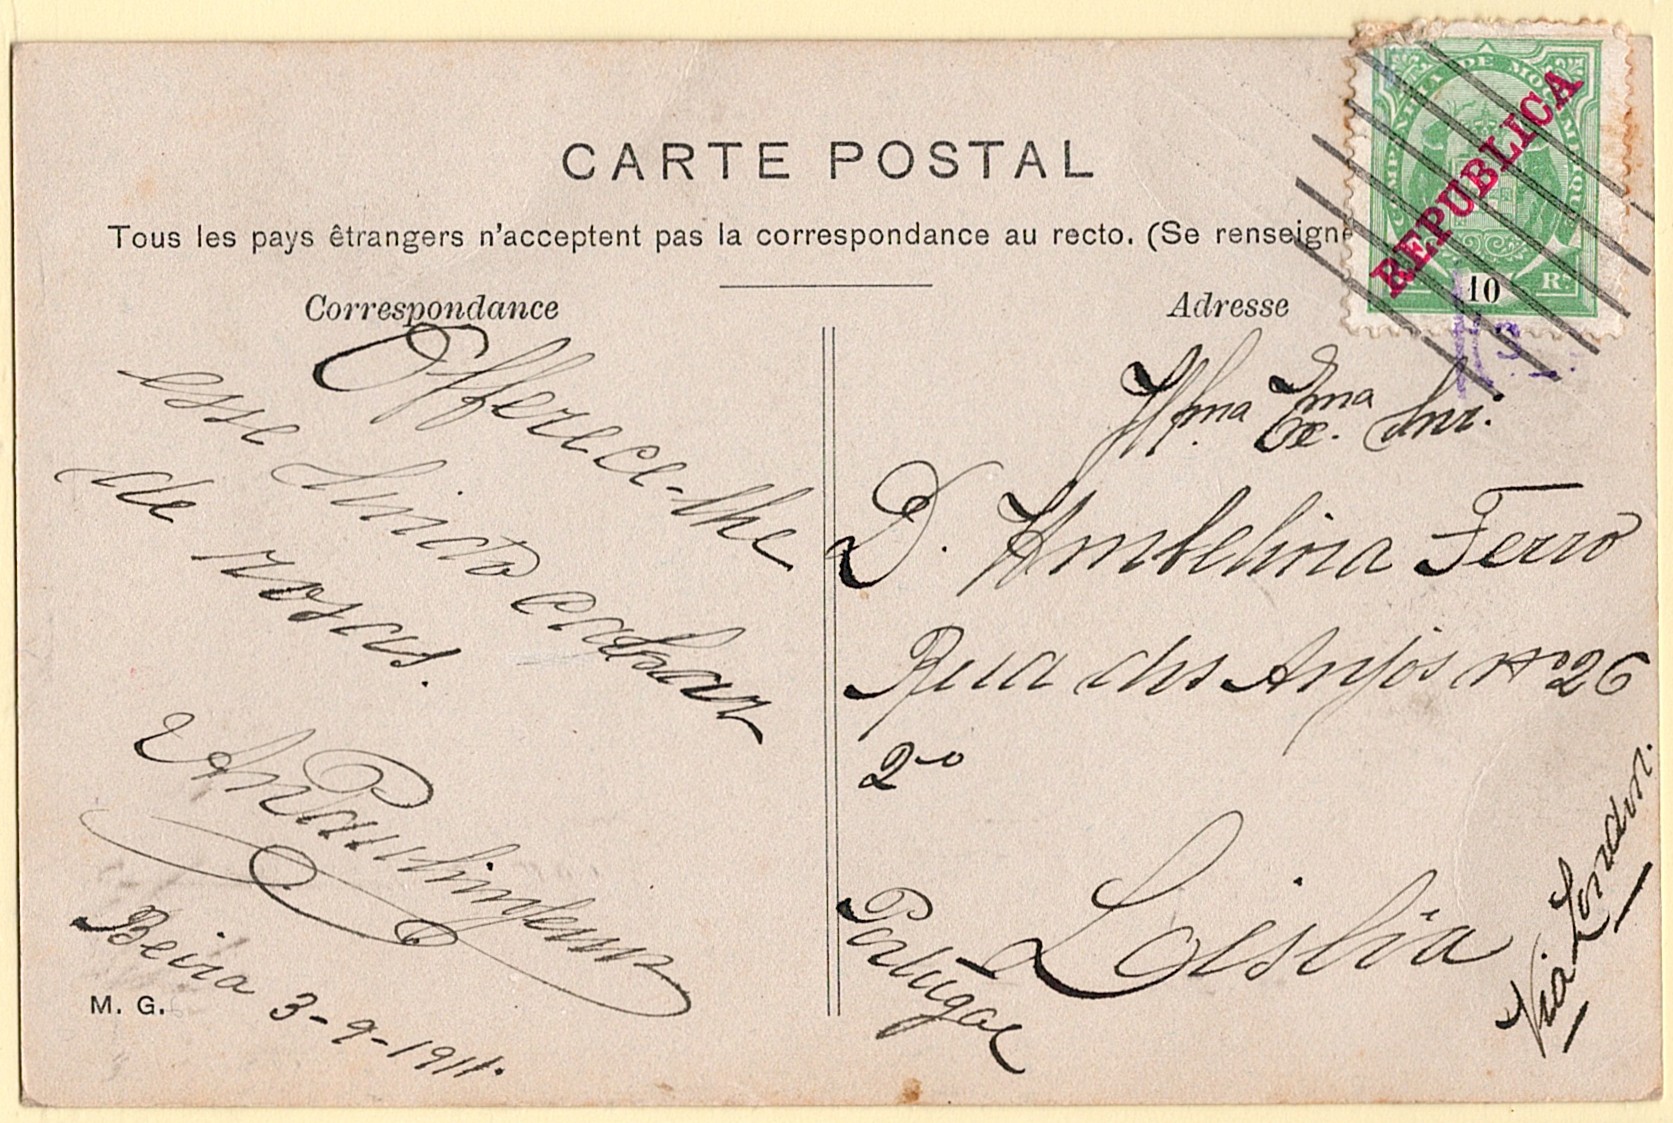 CARTE POSTAL
Tous les pays êtrangers n'acceptent pas la correspondance au recto. (Se renseigne
Correspondance
Offerece-lhe
esse lindo
de rosas.
Beira 3-9-1911.
M. G.
Adresse
Illma Exma Snr.
D. Ambelina Ferro
Rua dos Anjos nº 26
2º
Lisbia
Portugal
Via London.
COMPANHIA DE MOÇAMBIQUE
REPUBLICA
10 Rs.